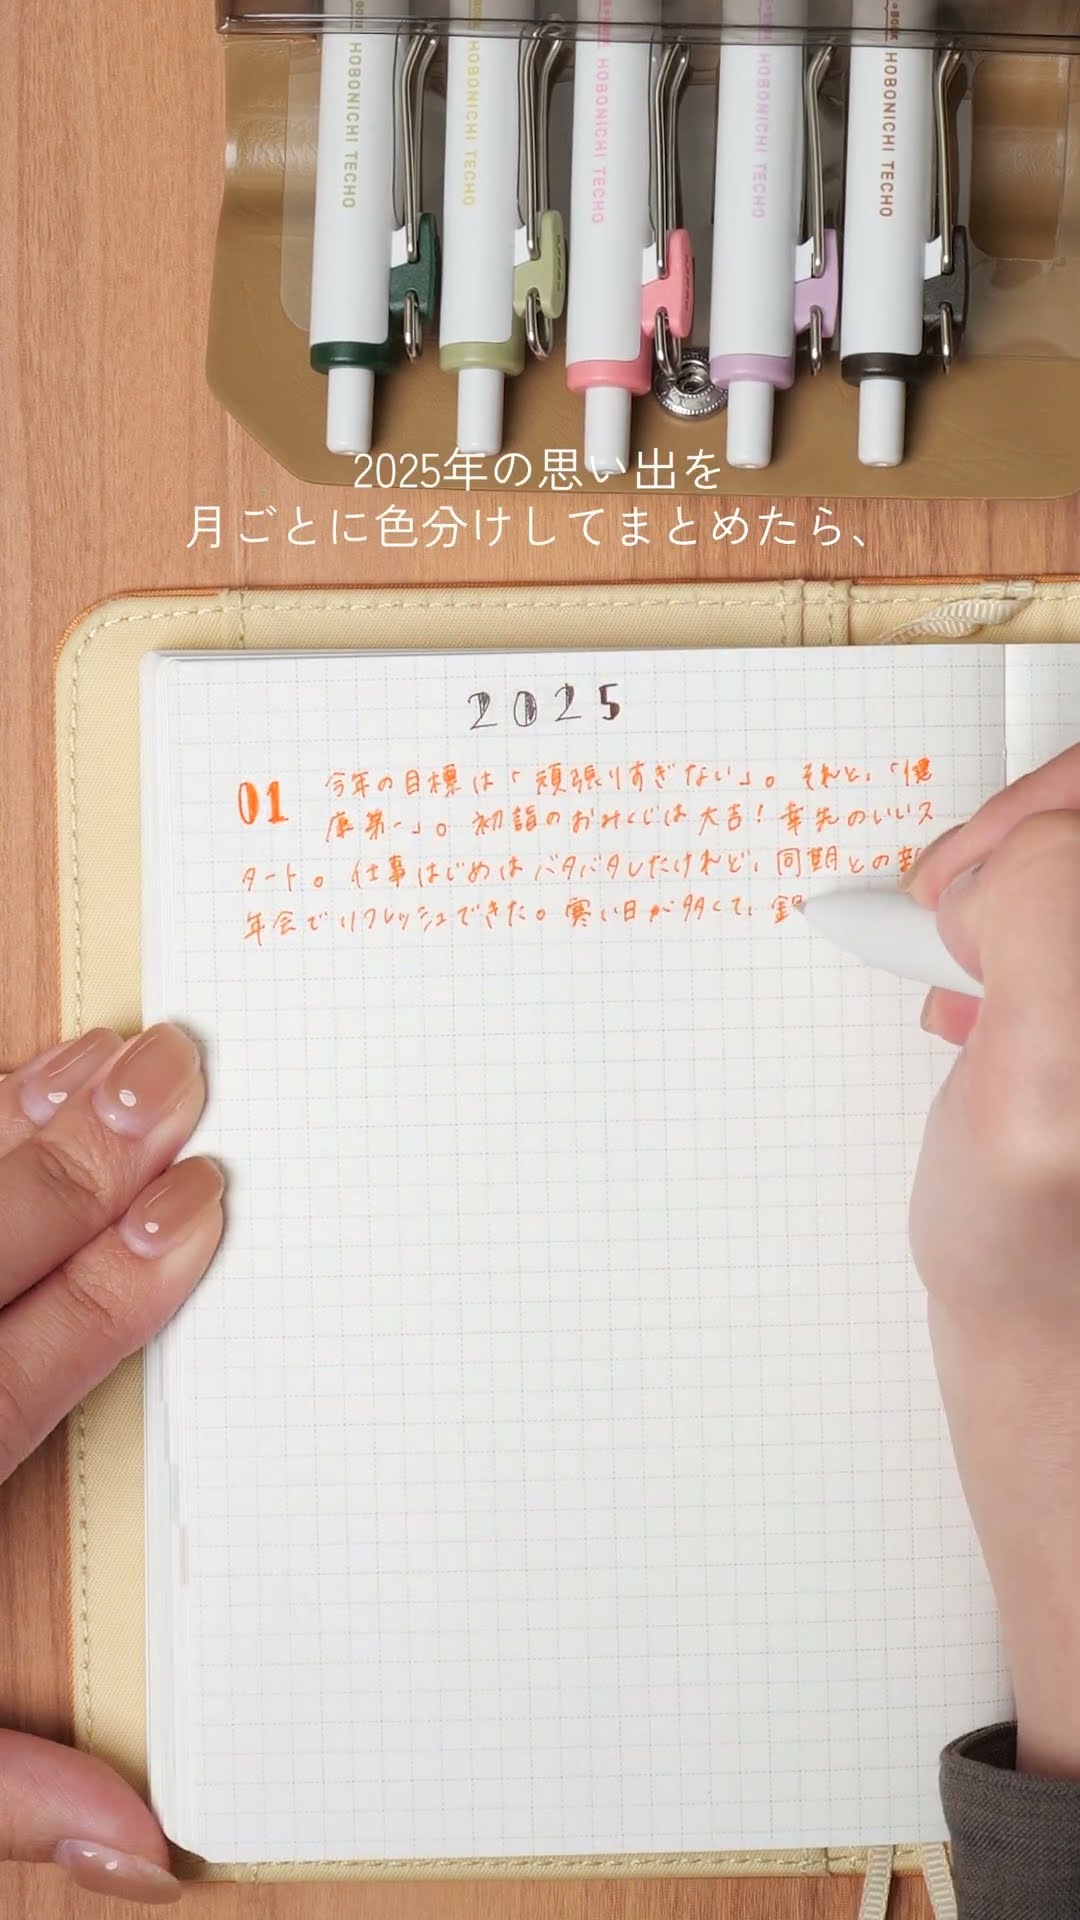 HOBONICHI TECHO
HOBONICHI TECHO
HOBONICHI TECHO
HOBONICHI TECHO
HOBONICHI TECHO
2025年の思い出を
月ごとに色分けしてまとめたら、
2025
01 今年の目標は「頑張りすぎない」。それと、「健
康第一」。初詣のおみくじは大吉！幸先のいいス
タート。仕事はじめはバタバタしたけれど、同期との新
年会でリフレッシュできた。寒い日が多くて、